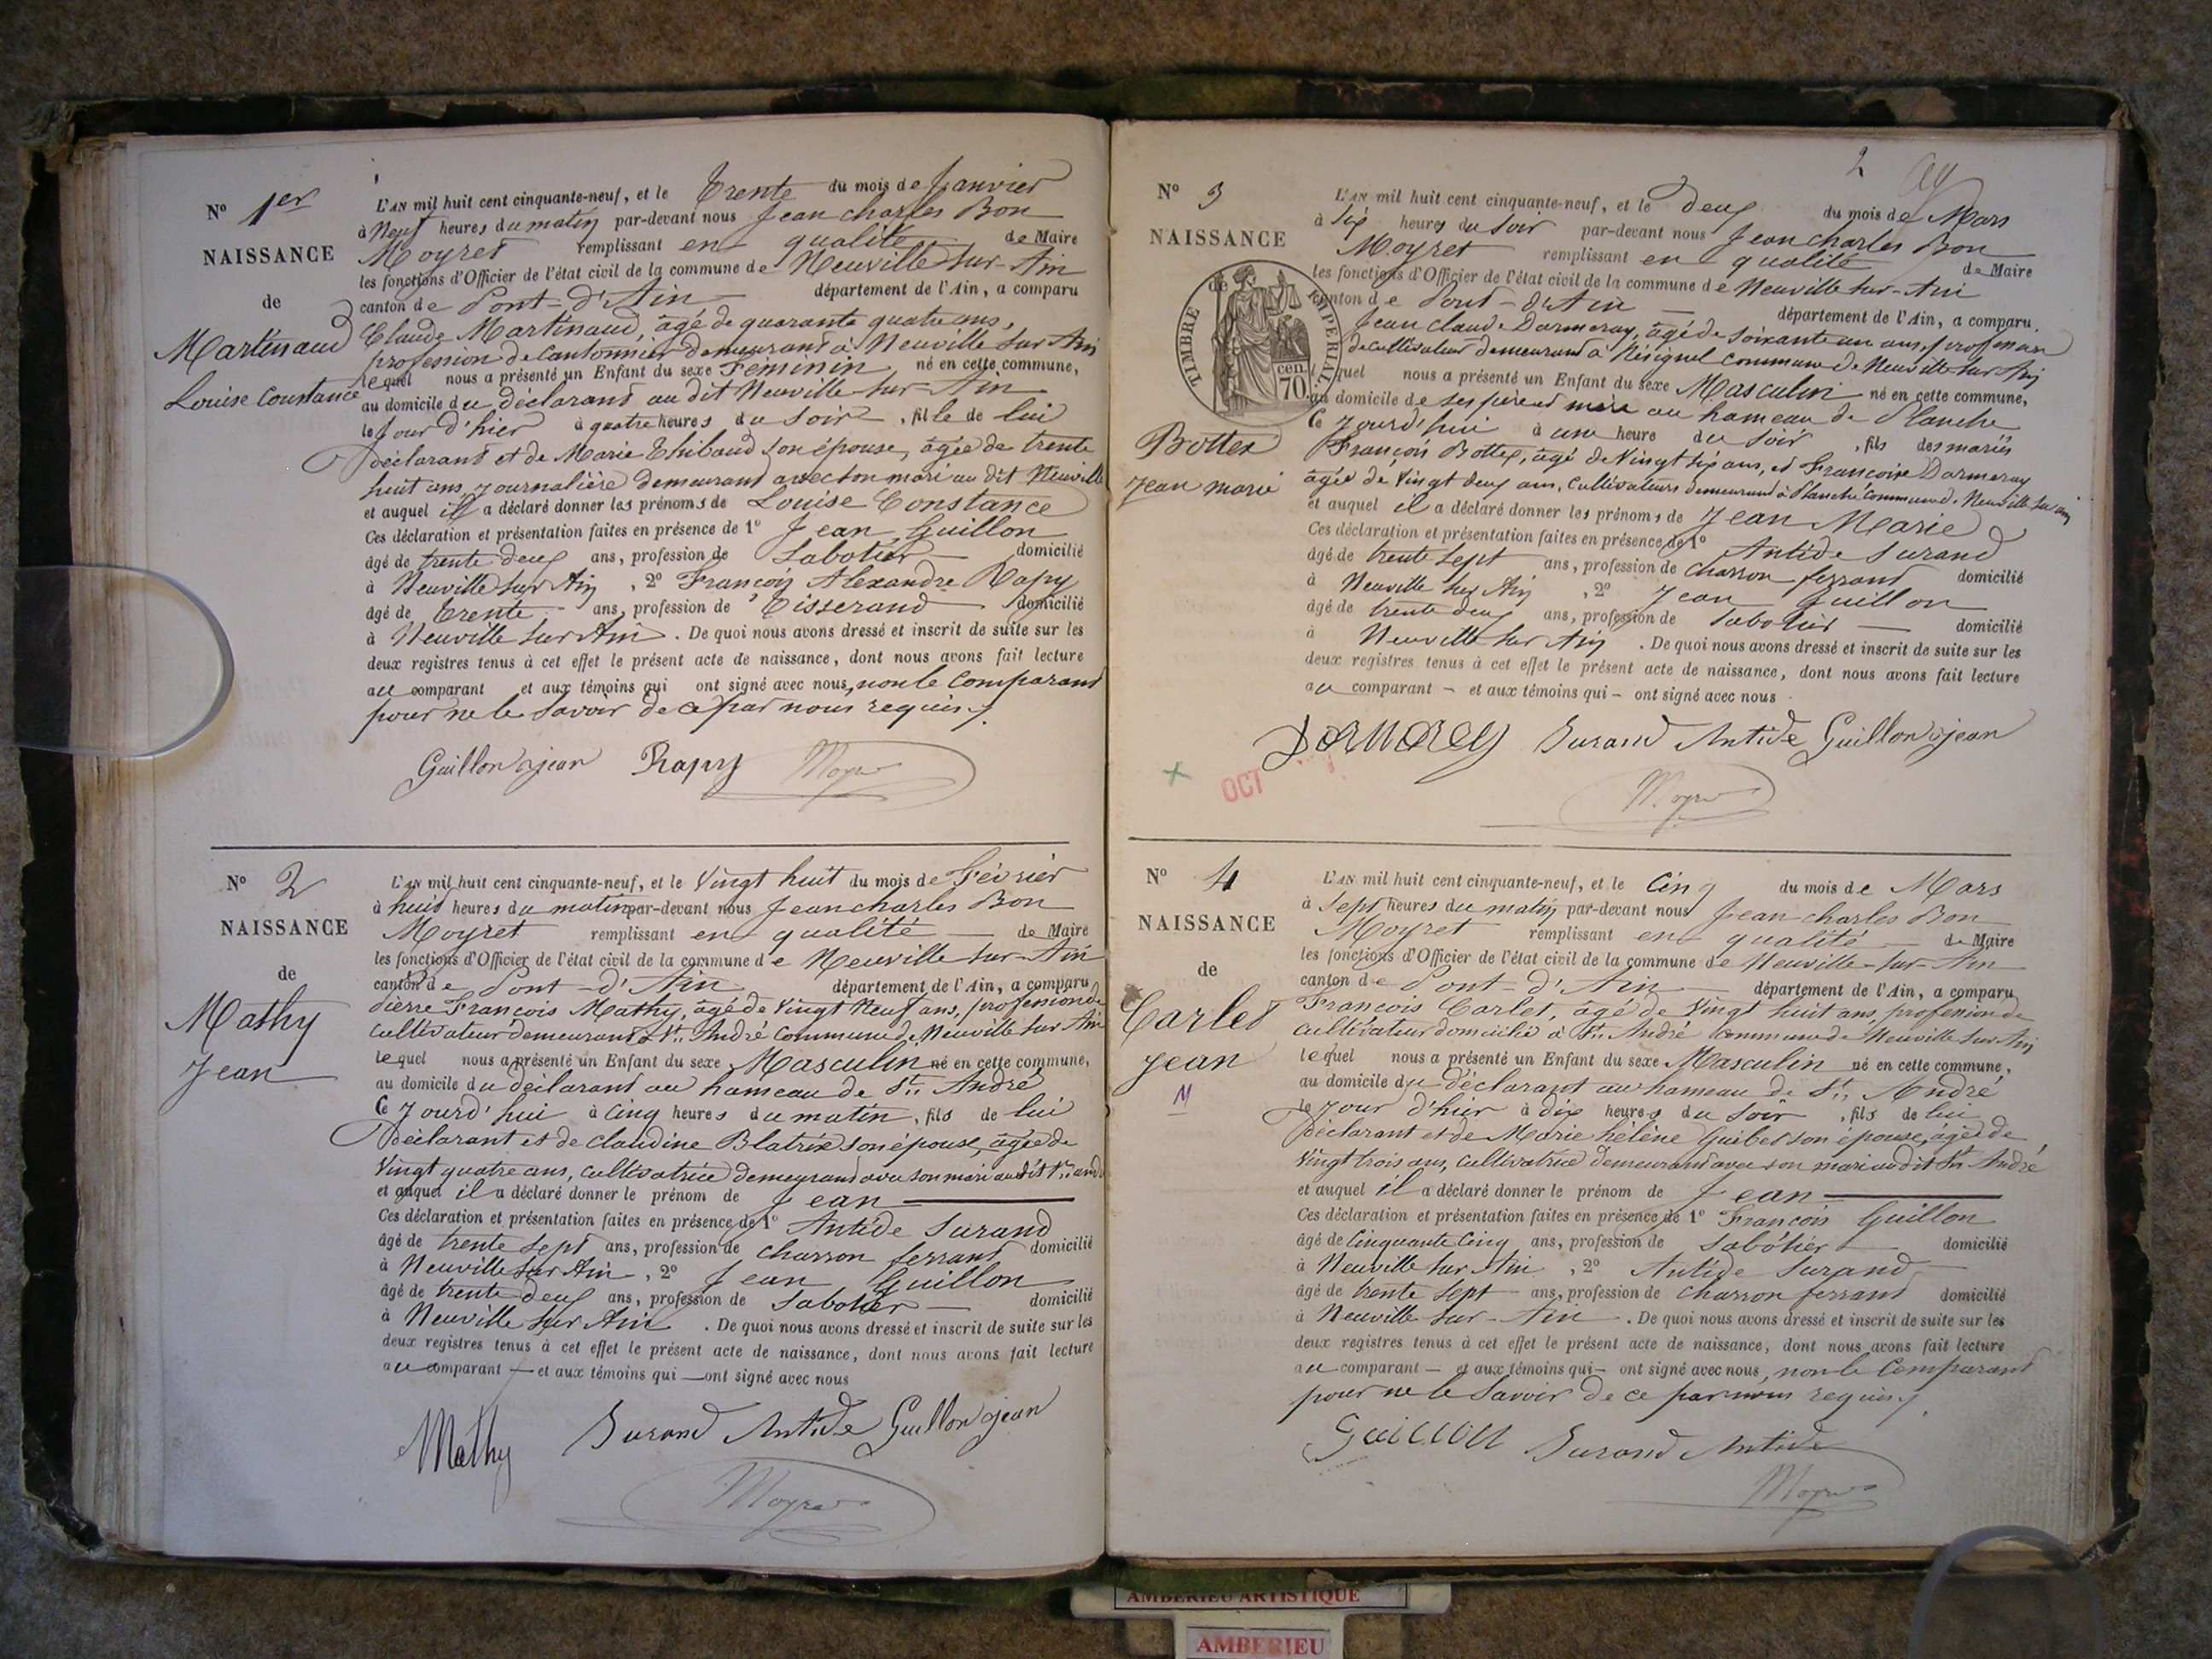 N° 1er
NAISSANCE
de
Martinaud
Louise Constance
L'AN mil huit cent cinquante-neuf, et le Trente du mois de Janvier
à Neuf heures du matin par-devant nous Jean charles Bon
Moyret remplissant en qualité de Maire
les fonctions d'Officier de l'état civil de la commune de Neuville sur-Ain
canton de Pont-d'Ain département de l'Ain, a comparu
Claude Martinaud, âgé de quarante quatre ans,
profession de Cantonnier demeurant à Neuville sur Ain
lequel nous a présenté un Enfant du sexe Féminin né en cette commune,
au domicile du déclarant au dit Neuville sur-Ain
le Jour d'hier à quatre heures du Soir, fille de lui
Déclarant et de Marie Thibaud son épouse, âgée de trente
huit ans, Journalière demeurant avec son mari au dit Neuville
et auquel il a déclaré donner les prénoms de Louise Constance
Ces déclaration et présentation faites en présence de 1° Jean Guillon
âgé de trente deux ans, profession de Sabotier domicilié
à Neuville sur Ain, 2° François Alexandre Rapy
âgé de Trente ans, profession de Tisserand domicilié
à Neuville sur Ain. De quoi nous avons dressé et inscrit de suite sur les
deux registres tenus à cet effet le présent acte de naissance, dont nous avons fait lecture
au comparant et aux témoins qui ont signé avec nous, non le Comparant
pour ne le Savoir de ce par nous requis.
Guillon jean Rapy Moyret
N° 2
NAISSANCE
de
Mathy
Jean
L'AN mil huit cent cinquante-neuf, et le Vingt huit du mois de Février
à huit heures du matin par-devant nous Jean charles Bon
Moyret remplissant en qualité de Maire
les fonctions d'Officier de l'état civil de la commune de Neuville sur-Ain
canton de Pont-d'Ain département de l'Ain, a comparu
Pierre François Mathy, âgé de Vingt Neuf ans, profession de
Cultivateur demeurant à St. André Commune de Neuville sur Ain
lequel nous a présenté un Enfant du sexe Masculin né en cette commune,
au domicile du déclarant au hameau de St. André
Ce Jourd'hui à Cinq heures du matin, fils de lui
Déclarant et de Claudine Blatrix son épouse, âgée de
Vingt quatre ans, Cultivatrice demeurant avec son mari au dit St. andré
et auquel il a déclaré donner le prénom de Jean
Ces déclaration et présentation faites en présence de 1° Antide Surand
âgé de trente Sept ans, profession de charron ferrant domicilié
à Neuville Sur Ain, 2° Jean Guillon
âgé de trente deux ans, profession de Sabotier domicilié
à Neuville sur Ain. De quoi nous avons dressé et inscrit de suite sur les
deux registres tenus à cet effet le présent acte de naissance, dont nous avons fait lecture
au comparant et aux témoins qui ont signé avec nous
Mathy Surand Antide Guillon jean
Moyret
2
N° 3
NAISSANCE
TIMBRE IMPERIAL
70 cen
Bottex
Jean marie
L'AN mil huit cent cinquante-neuf, et le deux du mois de Mars
à Six heures du Soir par-devant nous Jean charles Bon
Moyret remplissant en qualité de Maire
les fonctions d'Officier de l'état civil de la commune de Neuville sur-Ain
canton de Pont-d'Ain département de l'Ain, a comparu.
Jean Claude Darmeray, âgé de Soixante un ans, profession
de cultivateur demeurant à Résignel commune de Neuville sur Ain
lequel nous a présenté un Enfant du sexe Masculin né en cette commune,
au domicile de ses père et mère au hameau de Planche
Ce Jourd'hui à une heure du Soir, fils des mariés
François Bottex, âgé de Vingt Six ans, et Françoise Darmeray
âgée de Vingt deux ans, Cultivateurs demeurant à Planche Commune de Neuville sur ain
et auquel il a déclaré donner les prénoms de Jean Marie
Ces déclaration et présentation faites en présence de 1° Antide Surand
âgé de trente Sept ans, profession de charron ferrant domicilié
à Neuville sur Ain, 2° Jean Guillon
âgé de trente deux ans, profession de Sabotier domicilié
à Neuville sur Ain. De quoi nous avons dressé et inscrit de suite sur les
deux registres tenus à cet effet le présent acte de naissance, dont nous avons fait lecture
au comparant et aux témoins qui ont signé avec nous
Surand Antide Guillon jean
OCT
Moyret
N° 4
NAISSANCE
de
Carlet
Jean
M
L'AN mil huit cent cinquante-neuf, et le Cinq du mois de Mars
à Sept heures du matin par-devant nous Jean charles Bon
Moyret remplissant en qualité de Maire
les fonctions d'Officier de l'état civil de la commune de Neuville-sur-Ain
canton de Pont-d'Ain département de l'Ain, a comparu
François Carlet, âgé de Vingt huit ans, profession de
Cultivateur domicilié à St. André Commune de Neuville sur Ain
lequel nous a présenté un Enfant du sexe Masculin né en cette commune,
au domicile du déclarant au hameau de St. André
le Jour d'hier à dix heures du Soir, fils de lui
Déclarant et de Marie hélène Guibel son épouse, âgée de
Vingt trois ans, Cultivatrice demeurant avec son mari au dit St André
et auquel il a déclaré donner le prénom de Jean
Ces déclaration et présentation faites en présence de 1° François Guillon
âgé de Cinquante Cinq ans, profession de Sabotier domicilié
à Neuville sur Ain, 2° Antide Surand
âgé de trente Sept ans, profession de charron ferrant domicilié
à Neuville sur-Ain. De quoi nous avons dressé et inscrit de suite sur les
deux registres tenus à cet effet le présent acte de naissance, dont nous avons fait lecture
au comparant et aux témoins qui ont signé avec nous, non le Comparant
pour ne le Savoir de ce par nous requis.
Guillon Surand Antide
Moyret
AMBERIEU ARTISTIQUE
AMBERIEU